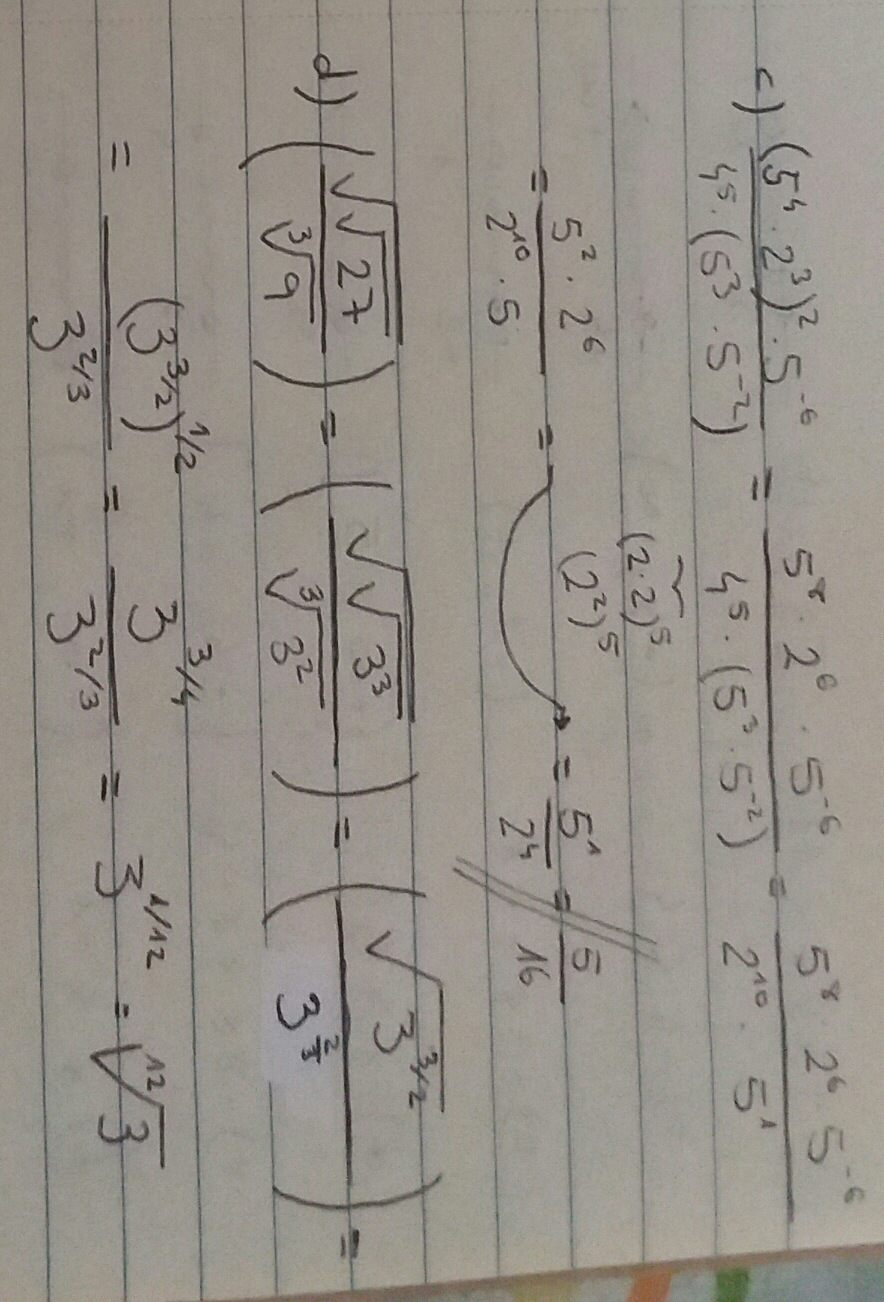 c) \frac{(5^4 \cdot 2^3)^2 \cdot 5^{-6}}{4^5 \cdot (5^3 \cdot 5^{-2})} = \frac{5^8 \cdot 2^6 \cdot 5^{-6}}{4^5 \cdot (5^3 \cdot 5^{-2})} = \frac{5^8 \cdot 2^6 \cdot 5^{-6}}{2^{10} \cdot 5^1}
(2 \cdot 2)^5
(2^2)^5
= \frac{5^2 \cdot 2^6}{2^{10} \cdot 5} = = \frac{5^1}{2^4} = \frac{5}{16}
d) \left( \frac{\sqrt{\sqrt{27}}}{\sqrt[3]{9}} \right) = \left( \frac{\sqrt{\sqrt{3^3}}}{\sqrt[3]{3^2}} \right) = \left( \frac{\sqrt{3^{3/2}}}{3^{\frac{2}{3}}} \right) =
= \frac{(3^{3/2})^{1/2}}{3^{2/3}} = \frac{3^{3/4}}{3^{2/3}} = 3^{1/12} = \sqrt[12]{3}